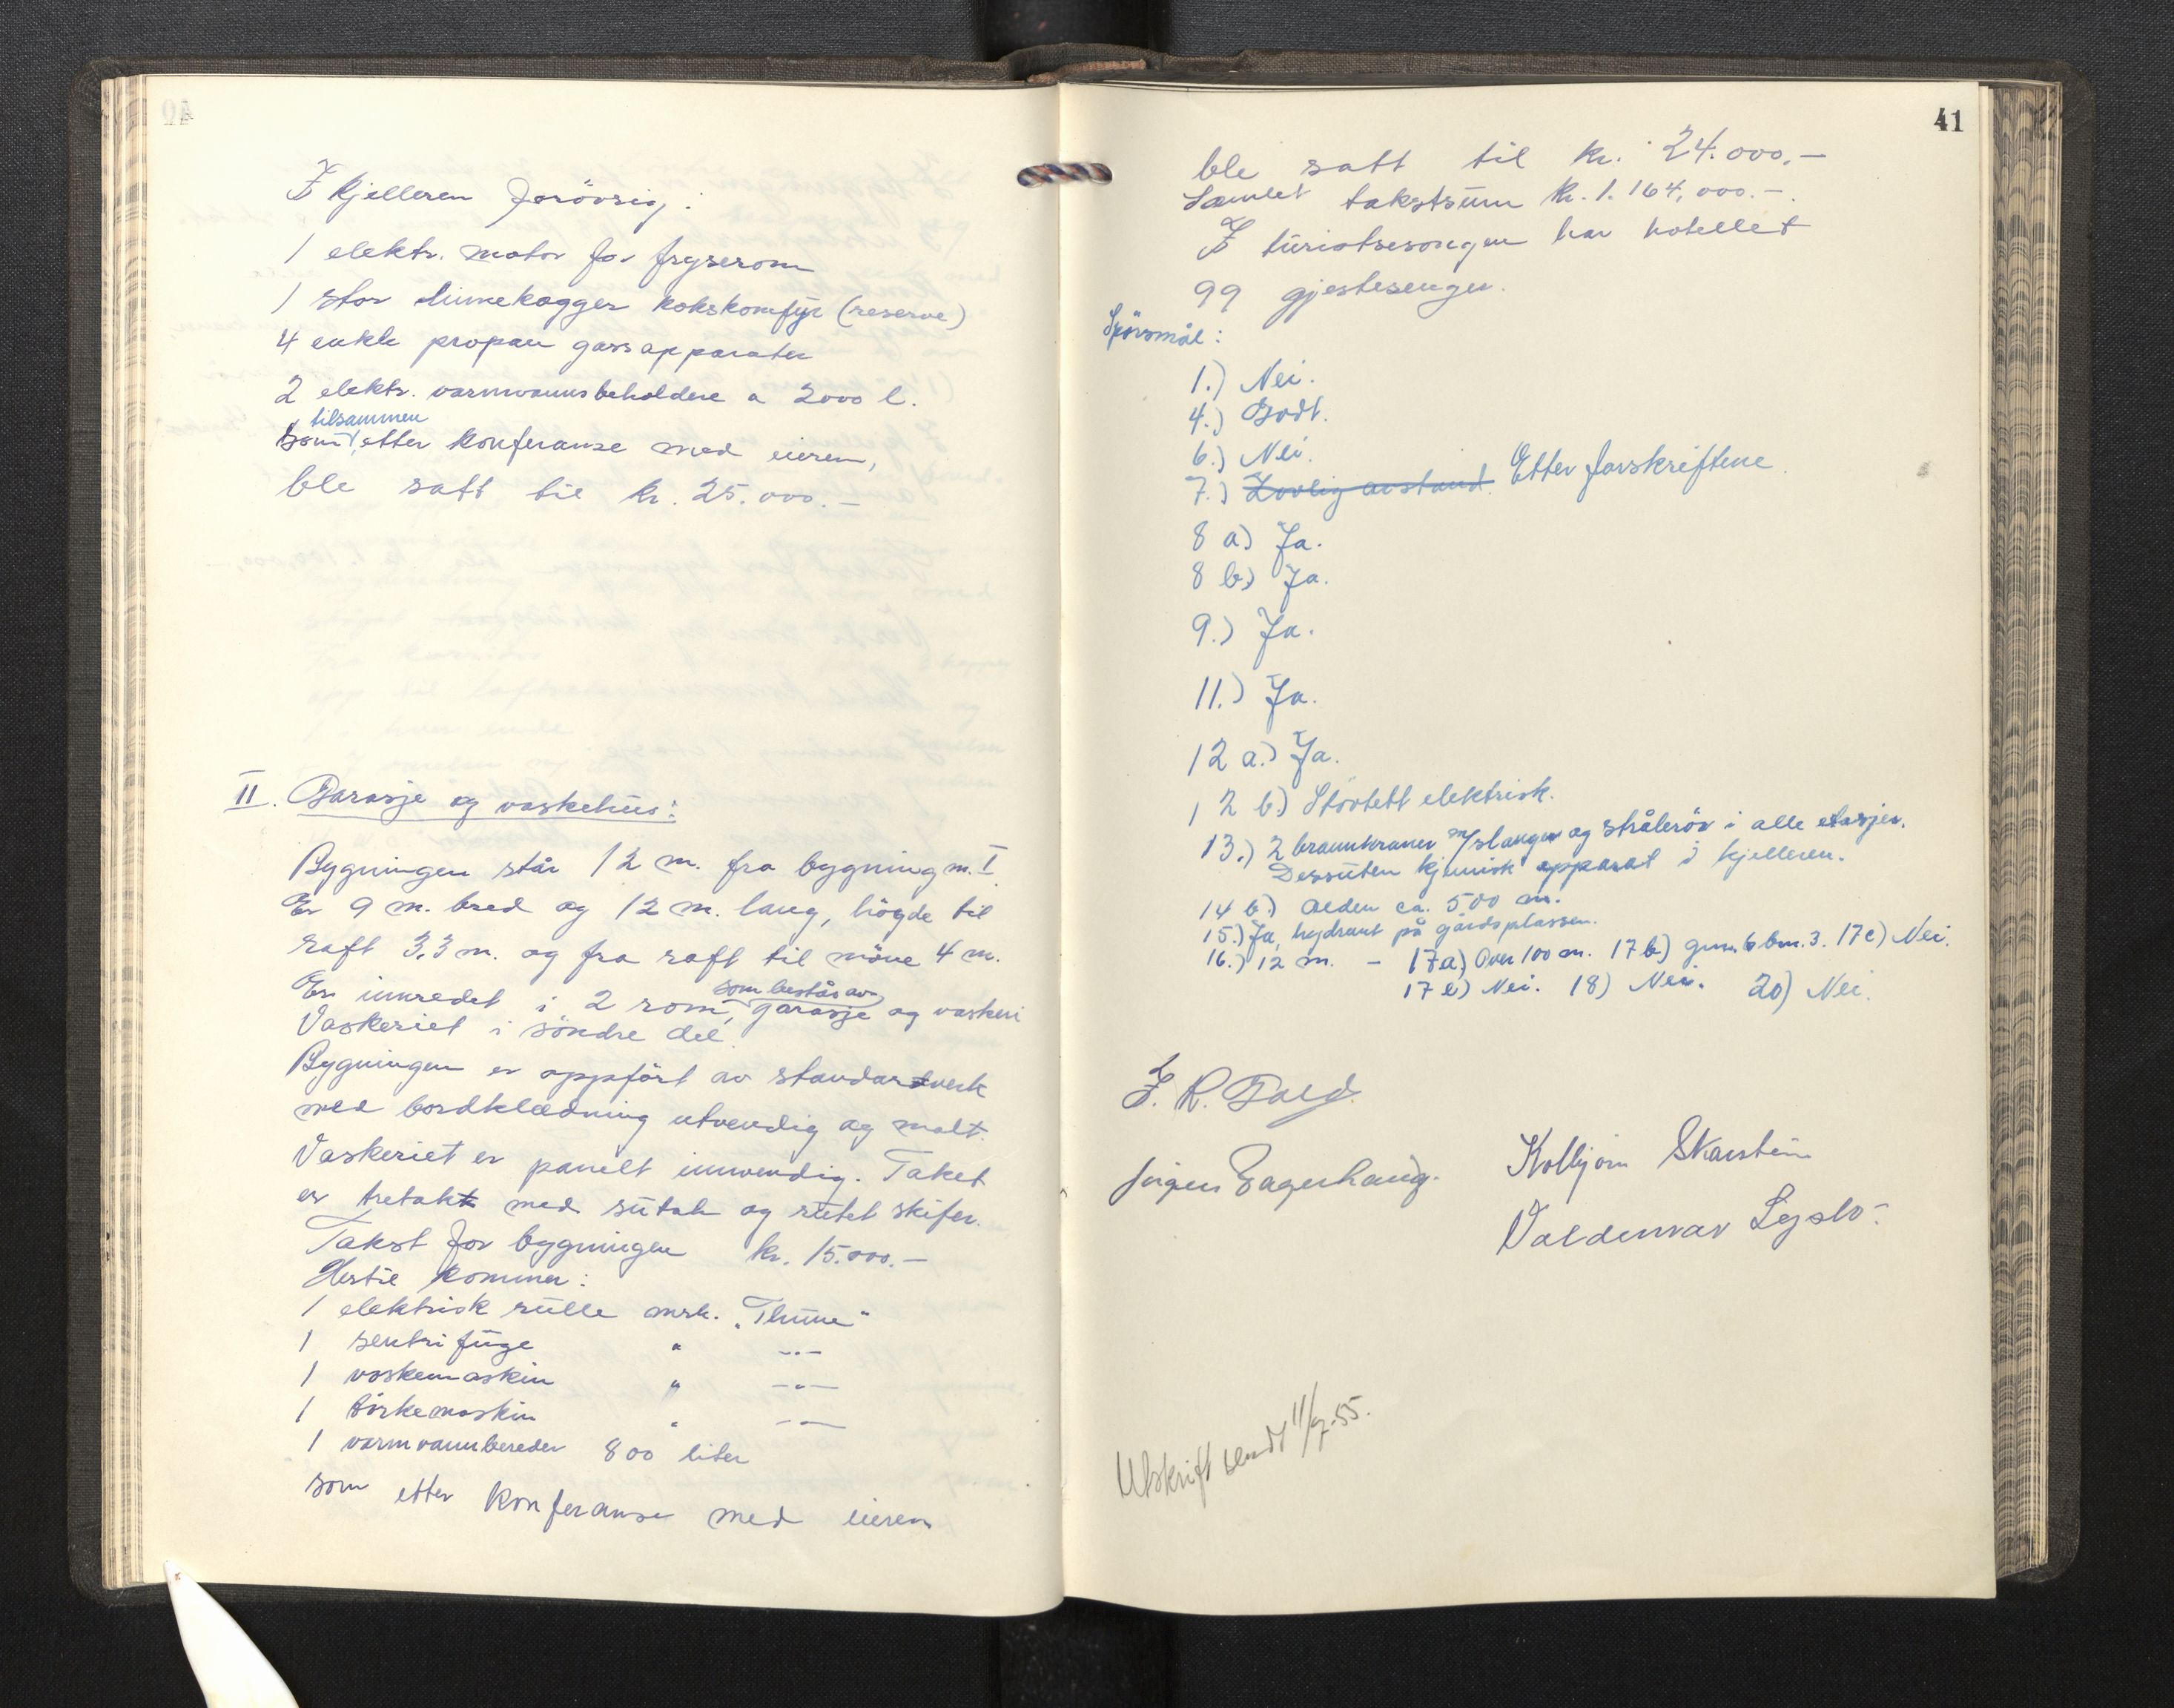 I kjelleren forövrig:
1 elektr. motor for fryserom
1 stor kokskomfyr (reserve)
4 enkle propan gassapparater
2 elektr. varmvannsbeholdere a 2000 l.
tilsammen
som, etter konferanse med eieren,
ble satt til kr. 25.000.–
II. Garasje og vaskehus:
Bygningen står 12 m. fra bygning m. I.
Er 9 m. bred og 12 m. lang, högde til
raft 3,3 m. og fra raft til möne 4 m.
som består av
Er innredet i 2 rom, garasje og vaskeri
Vaskeriet i söndre del.
Bygningen er oppfört av standardverk
med bordkledning utvendig og malt.
Vaskeriet er panelt innvendig. Taket
er tretakt med sutak og rutet skifer.
Takst for bygningen kr. 15.000.–
Hertil kommer:
1 elektrisk rulle mrk. "Thune"
1 sentrifuge " –"–
1 vaskemaskin " –"–
1 törkemaskin " –"–
1 varmvannbereder 800 liter
som etter konferanse med eieren
41
ble satt til kr. 24.000.–
Samlet takstsum kr. 1.164,000.–.
I turistsesongen har hotellet
99 gjestesenger.
Spörsmål:
1.) Nei.
4.) Godt.
6.) Nei.
7.) Lovlig avstand. Etter forskriftene.
8 a) Ja.
8 b) Ja.
9.) Ja.
11.) Ja.
12 a.) Ja.
12 b.) Stövtett elektrisk.
13.) 2 brannkraner m/slanger og strålerör i alle etasjer.
Dessuten kjemisk apparat i kjelleren.
14 b.) Olden ca. 500 m.
15.) Ja, hydrant på gårdsplassen.
16.) 12 m. – 17a) Over 100 m. 17 b) grm. b bm. 3. 17c) Nei.
17 e) Nei. 18) Nei. 20) Nei.
Jörgen
Kolbjörn Skarstein
Valdemar
Utskrift sendt 11/7-55.